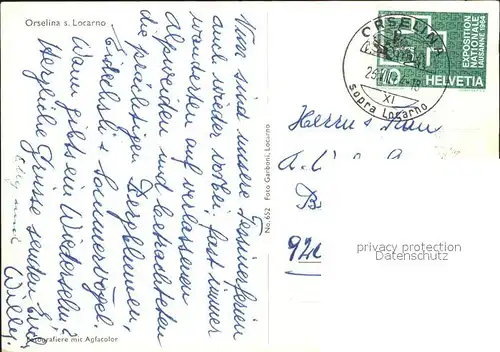 Orselina s. Locarno
Nun sind unsere Tessinerferien
auch wieder vorbei, fast immer
wanderten auf verlassenen
Alpweiden und betrachteten
die prächtigen Bergblumen,
Eidechsli & Sommervögel.
Wann gibts ein Wiedersehn?
Herzliche Grüsse senden Euch
und
Willy.
Fotografiere mit Agfacolor
No. 652 Foto Garbani, Locarno
ORSELINA
XI
sopra Locarno
EXPOSITION
NATIONALE
LAUSANNE 1964
10
HELVETIA
Herrn & Frau
privacy protection
Datenschutz